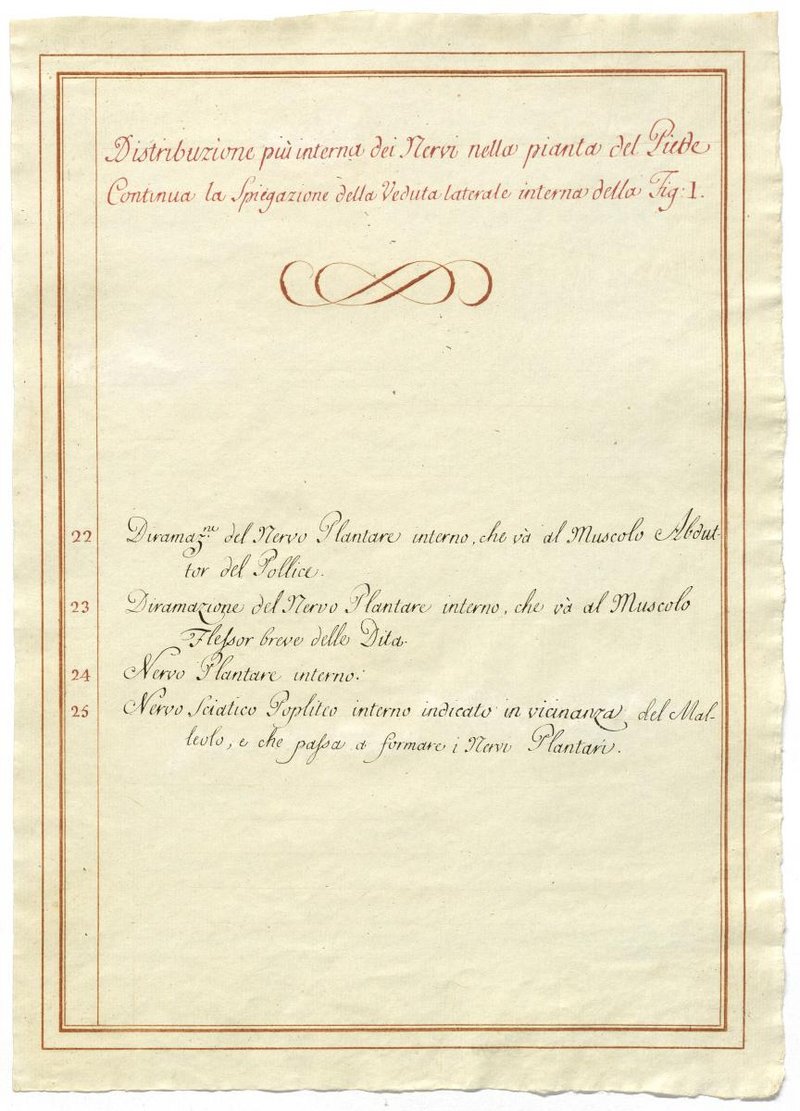 Distribuzione più interna dei Nervi nella pianta del Piede
Continua la Spiegazione della Veduta laterale interna della Fig: 1.
22 Diramaz.ne del Nervo Plantare interno, che và al Muscolo Abdut-
tor del Pollice.
23 Diramazione del Nervo Plantare interno, che và al Muscolo
Fleſsor breve delle Dita.
24 Nervo Plantare interno:
25 Nervo Sciatico Popliteo interno indicato in vicinanza del Mal-
leolo, e che paſsa a formare i Nervi Plantari.